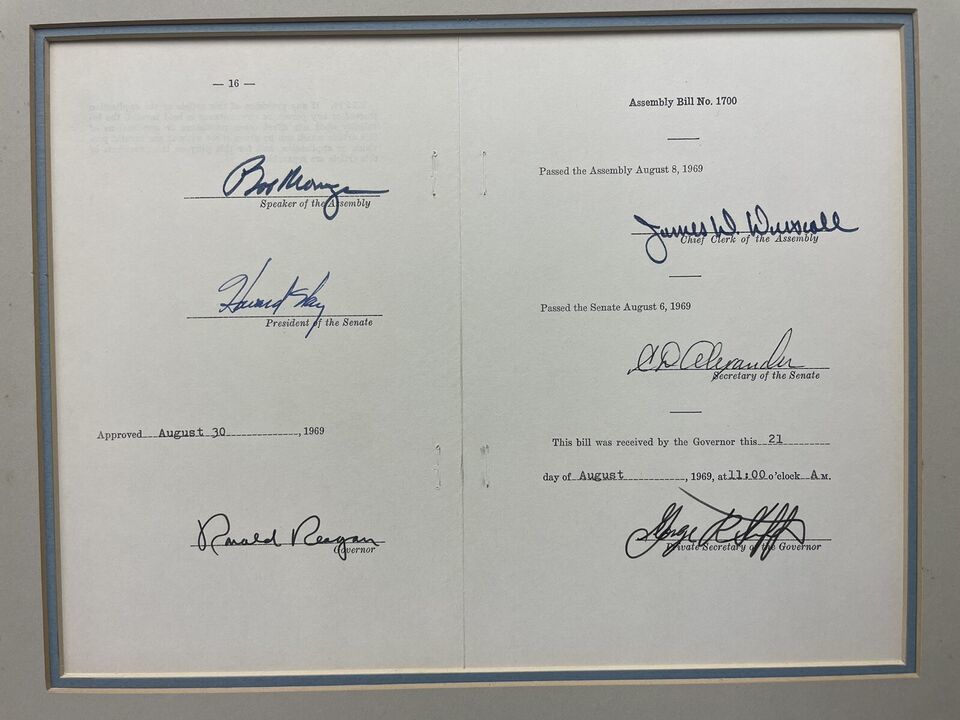 — 16 —
Speaker of the Assembly
Howard Way
President of the Senate
Approved August 30, 1969
Ronald Reagan
Governor
Assembly Bill No. 1700
Passed the Assembly August 8, 1969
James W. Driscoll
Chief Clerk of the Assembly
Passed the Senate August 6, 1969
C D Alexander
Secretary of the Senate
This bill was received by the Governor this 21
day of August, 1969, at 11:00 o'clock A M.
Private Secretary of the Governor